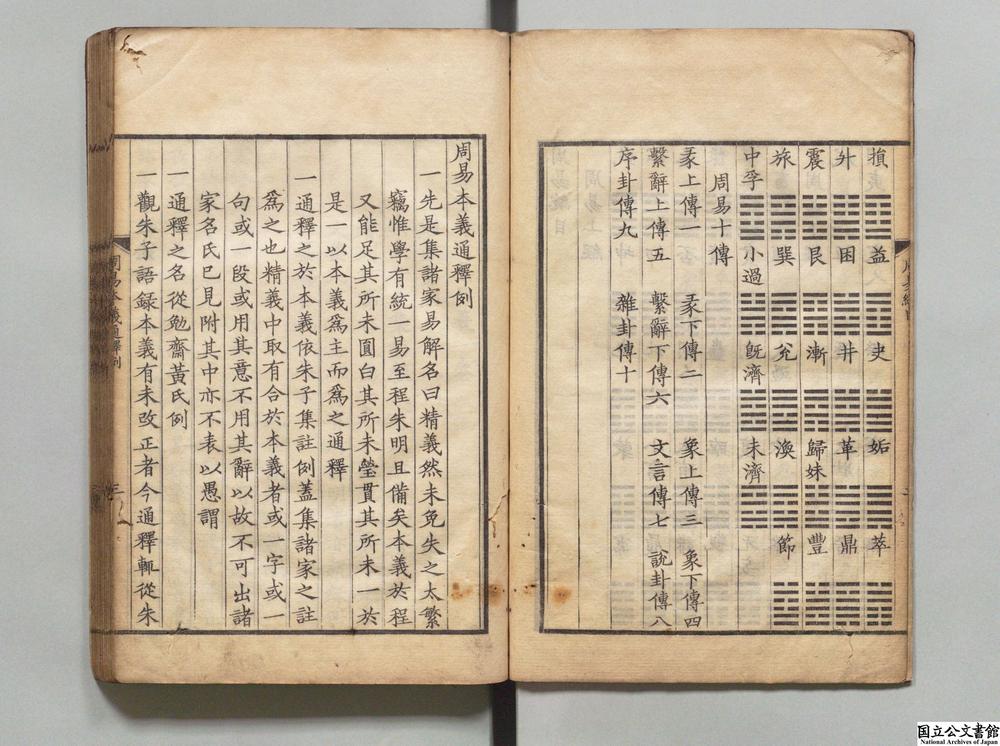 損 益 夬 姤 萃
升 困 井 革 鼎
震 艮 漸 歸妹 豐
旅 巽 兊 渙 節
中孚 小過 旣濟 未濟
周易十傳
彖上傳一 彖下傳二 象上傳三 象下傳四
繫辭上傳五 繫辭下傳六 文言傳七 說卦傳八
序卦傳九 雜卦傳十
周易本義通釋例
一先是集諸家易解名曰精義然未免失之太繁
竊惟學有統一易至程朱明且備矣本義於程
又能足其所未圓白其所未瑩貫其所未一於
是一以本義爲主而爲之通釋
一通釋之於本義依朱子集註例蓋集諸家之註
爲之也精義中取有合於本義者或一字或一
句或一段或用其意不用其辭以故不可出諸
家名氏已見附其中亦不表以愚謂
一通釋之名從勉齋黃氏例
一觀朱子語録本義有未改正者今通釋輒從朱
周易本義通釋例
国立公文書館
National Archives of Japan